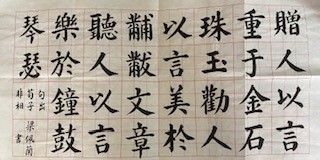 贈人以言
重于金石
珠玉勸人
以言美於
黼黻文章
聽人以言
樂於鐘鼓
琴瑟
句出荀子
非相
書